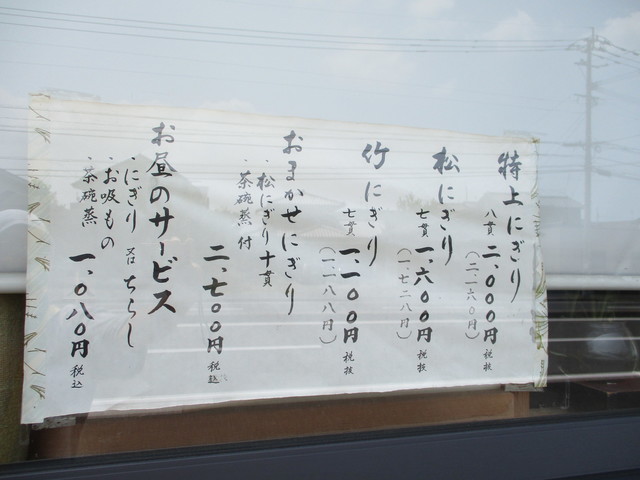 特上にぎり
八貫 二、〇〇〇円 税抜
（二、一六〇円）
松にぎり
七貫 一、六〇〇円 税抜
（一、七二八円）
竹にぎり
七貫 一、一〇〇円 税抜
（一、一八八円）
おまかせにぎり
・松にぎり十貫
・茶碗蒸付
二、七〇〇円 税込
お昼のサービス
・にぎり 又は ちらし
・お吸もの
・茶碗蒸
一、〇八〇円 税込